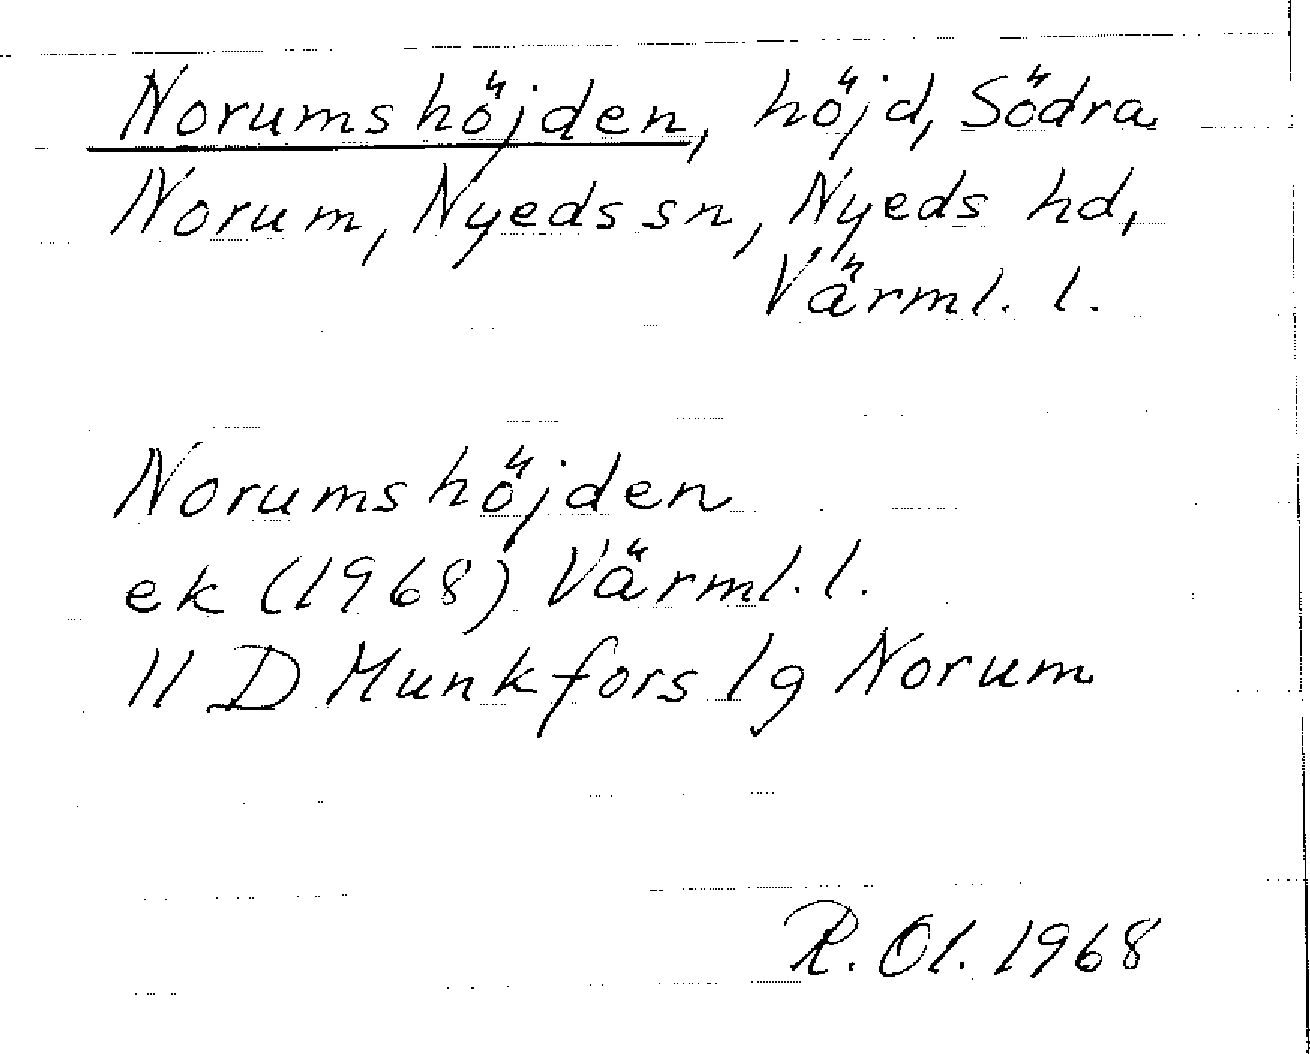 Norumshöjden, höjd, Södra
Norum, Nyeds sn, Nyeds hd,
Värml. l.
Norumshöjden
ek (1968) Värml. l.
11 D Munkfors 1g Norum
R. Ol. 1968